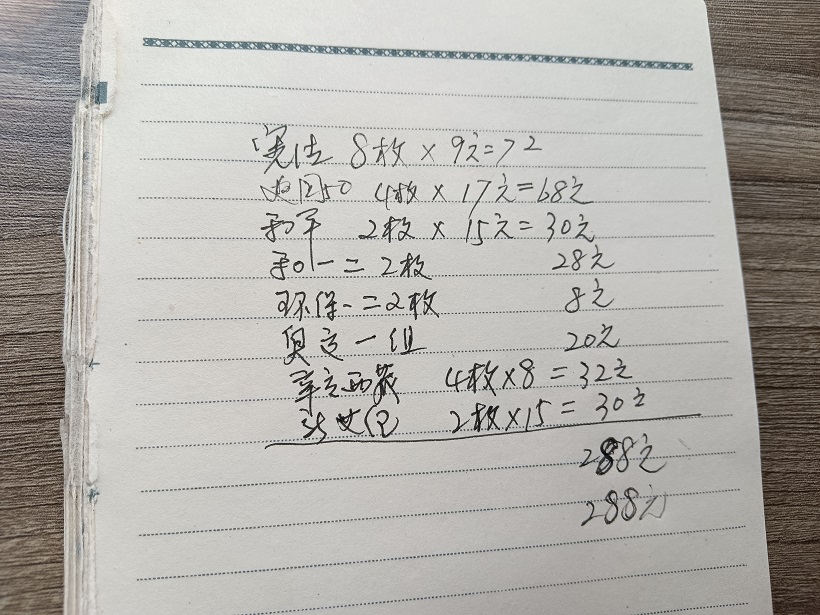 宪法 8枚×9元=72
建国50 4枚×17元=68元
和平 2枚×15元=30元
和一二2枚 28元
环保一二2枚 8元
奥运一组 20元
辛亥西藏 4枚×8=32元
2枚×15=30元
288元
288元